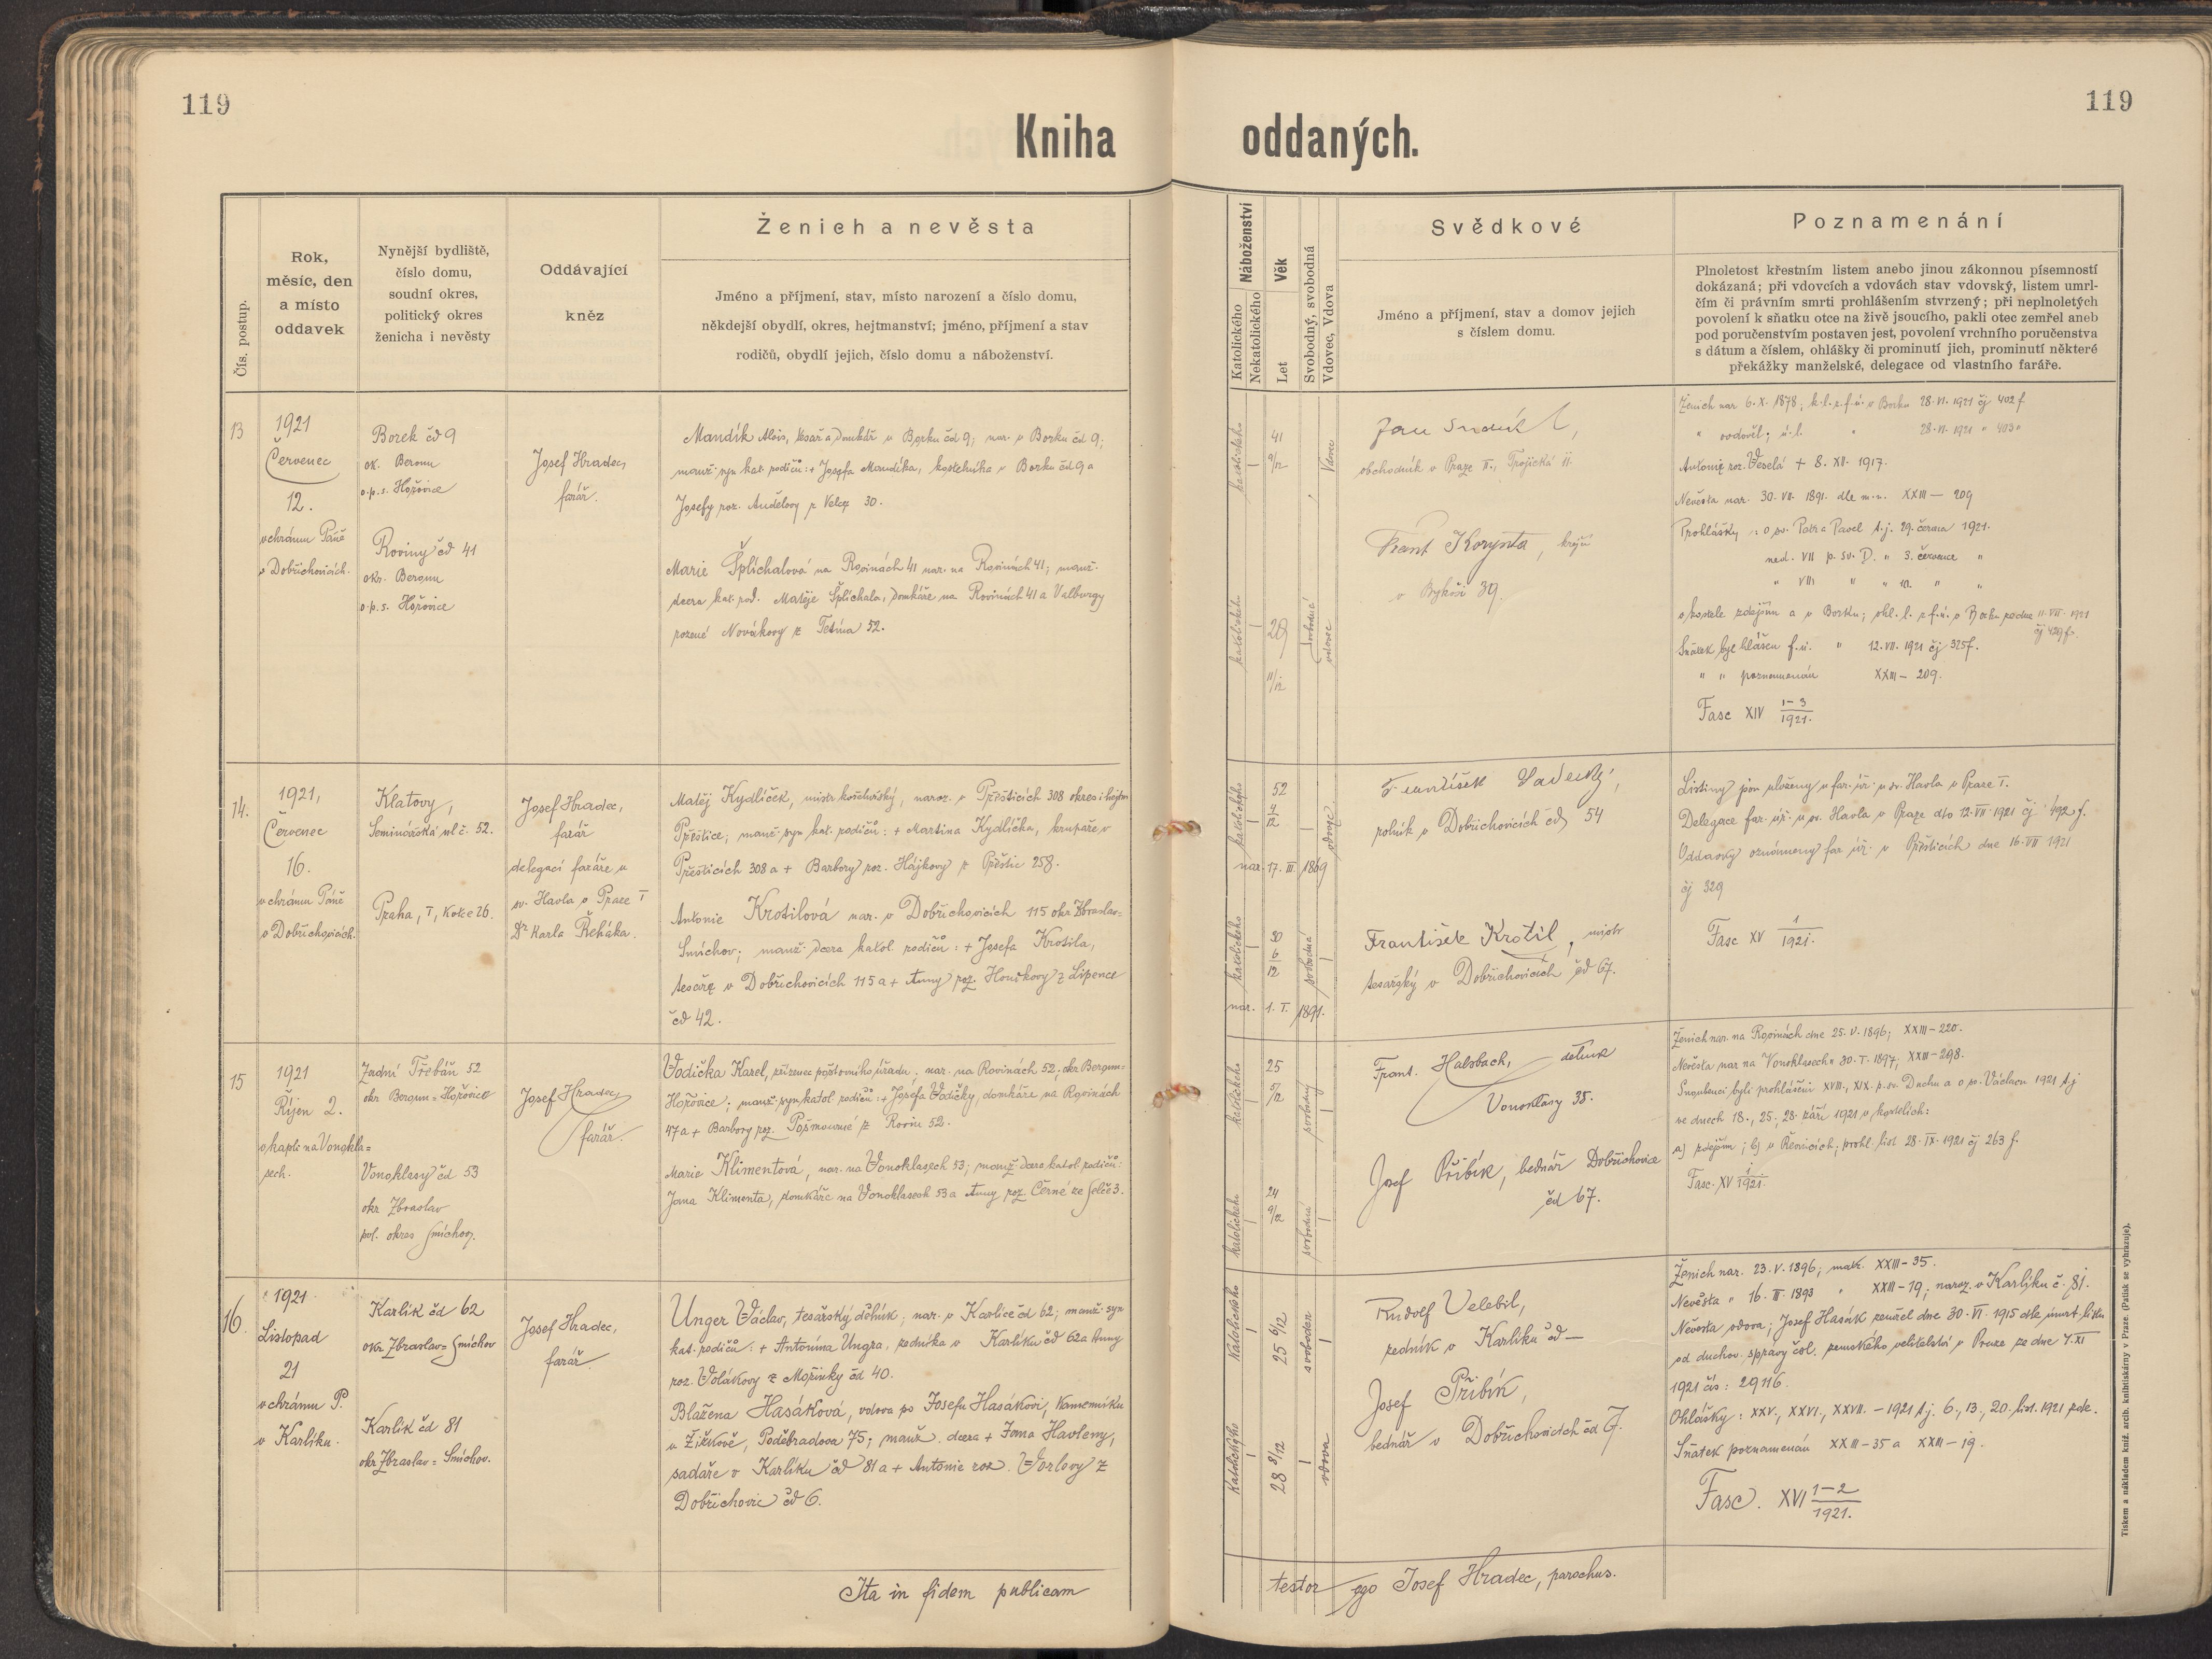 119
119
Kniha oddaných.
Čís. postup.
Rok,
měsíc, den
a místo
oddavek
Nynější bydliště,
číslo domu,
soudní okres,
politický okres
ženicha i nevěsty
Oddávající
kněz
Ženich a nevěsta
Jméno a příjmení, stav, místo narození a číslo domu,
někdejší obydlí, okres, hejtmanství; jméno, příjmení a stav
rodičů, obydlí jejich, číslo domu a náboženství.
Náboženství
Katolického
Nekatolického
Věk
Let
Svobodný, svobodná
Vdovec, Vdova
Svědkové
Jméno a příjmení, stav a domov jejich
s číslem domu.
Poznamenání
Plnoletost křestním listem anebo jinou zákonnou písemností
dokázaná; při vdovcích a vdovách stav vdovský, listem umrl-
čím či právním smrti prohlášením stvrzený; při neplnoletých
povolení k sňatku otce na živě jsoucího, pakli otec zemřel aneb
pod poručenstvím postaven jest, povolení vrchního poručenstva
s dátum a číslem, ohlášky či prominutí jich, prominutí některé
překážky manželské, delegace od vlastního faráře.
13
1921
Červenec
12.
v chrámu Páně
v Dobřichovicích.
Borek čd 9
ok. Beroun
o.p.s. Hořovice
Roviny čd 41
okr. Beroun
o.p.s. Hořovice
Josef Hradec,
farář.
Mandík Alois, tesař a domkář v Borku čd 9; nar. v Borku čd 9;
manž. syn kat. rodičů: + Josefa Mandíka, kostelníka v Borku čd 9 a
Josefy roz. Andělovy z 30.
Marie Šplíchalová na Rovinách 41 nar. na Rovinách 41; manž.
dcera kat. rod. Matěje Šplíchala, domkáře na Rovinách 41 a Valburgy
rozené Novákovy z Tetína 52.
katolického
41
9/12
vdovec
katolického
29
11/12
svobodná
Jan
obchodník v Praze II., Trojická 11.
Frant Korynta, krejčí
v Bykoši 39.
Ženich nar 6. X. 1878; k.l. z f.ú. v Borku 28. VI. 1921 čj 402 f
" ovdověl; ú.l. " 28. VI. 1921 " 403 "
Antonie roz. Veselá + 8. XII. 1917.
Nevěsta nar. 30. VII. 1891. dle m.n. XXIII — 209
Prohlášky: o sv. Petra a Pavel t.j. 29. června 1921.
ned. VII p. sv. D. " 3. července "
" VIII " " 10. " "
v kostele zdejším a v Borku; ohl. l. z f.ú. v Borku ze dne 11. VII. 1921
čj 429 f.
Sňatek byl hlášen f.ú. " 12. VII. 1921 čj 325 f.
" " poznamenán XXIII — 209.
Fasc XIV 1-3/1921.
14.
1921,
Červenec
16.
v chrámu Páně
v Dobřichovicích.
Klatovy,
Seminářská ul č. 52.
Praha, I, Kotce 26.
Josef Hradec,
farář
delegací faráře u
sv. Havla v Praze I
Dr Karla Řeháka.
Matěj Kydlíček, mistr kožešnický, naroz. v Přešticích 308 okres i hejtm
Přeštice; manž. syn kat. rodičů: + Martina Kydlíčka, krupaře v
Přešticích 308 a + Barbory roz. Hájkovy z Přeštic 258.
Antonie Krotilová nar. v Dobřichovicích 115 okr Zbraslav=
Smíchov; manž. dcera katol. rodičů: + Josefa Krotila,
tesaře v Dobřichovicích 115 a + Anny roz. Houškovy z Lipence
čd 42.
katolického
52
4/12
vdovec
nar. 17. III. 1869
katolického
30
6/12
svobodná
nar. 1. I. 1891.
František
rolník v Dobřichovicích čd 54
František Krotil, mistr
tesařský v Dobřichovicích čd 67.
Listiny jsou uloženy u far. úř. u sv. Havla v Praze I.
Delegace far. úř. u sv. Havla v Praze dto 12. VII. 1921 čj 492 f.
Oddavky oznámeny far úř. v Přešticích dne 16. VII 1921
čj 329
Fasc XV 1/1921.
15
1921
Říjen 2.
v kapli na Vonokla=
sech.
Zadní Třebáň 52
okr Beroun = Hořovice
Vonoklasy čd 53
okr Zbraslav
pol. okres Smíchov.
Josef Hradec,
farář.
Vodička Karel, zřízenec poštovního úřadu, nar. na Rovinách 52, okr Beroun=
Hořovice; manž. syn katol rodičů: + Josefa Vodičky, domkáře na Rovinách
47 a + Barbory roz. Pošmourné z Rovin 52.
Marie Klimentová, nar. na Vonoklasech 53; manž. dcera katol rodičů:
Jana Klimenta, domkáře na Vonoklasech 53 a Anny roz Černé ze Selče 3.
katolického
25
5/12
svobodný
katolického
24
9/12
svobodná
Frant. Halsbach, dělník
Vonoklasy 38.
Josef Přibík, bednář Dobřichovice
čd 67.
Ženich nar. na Rovinách dne 25. V. 1896; XXIII—220.
Nevěsta nar na Vonoklasech " 30. I. 1897; XXIII—298.
Snoubenci byli prohlášeni XVIII., XIX. p. sv. Duchu a o sv. Václavu 1921 t.j
ve dnech 18., 25., 28. září 1921 v kostelích:
a) zdejším; b) v Řevnicích; prohl. list 28. IX. 1921 čj 263 f.
Fasc. XV 1/1921.
16.
1921
Listopad
21
v chrámu P.
v Karlíku.
Karlík čd 62
okr Zbraslav = Smíchov
Karlík čd 81
okr Zbraslav = Smíchov.
Josef Hradec,
farář.
Unger Václav, tesařský dělník; nar. v Karlíce čd 62; manž. syn
kat. rodičů: + Antonína Ungra, zedníka v Karlíku čd 62 a Anny
roz. Volákovy z Mořinky čd 40.
Blažena Hasáková, vdova po Josefu Hasákovi, kameníku
v Žižkově, Poděbradova 75; manž. dcera + Jana Havleny,
sadaře v Karlíku čd 81 a + Antonie roz. Vorlovy z
Dobřichovic čd 6.
Katolického
25 6/12
svoboden
Katolického
28 8/12
vdova
Rudolf Velebil,
zedník v Karlíku čd —
Josef Přibík,
bednář v Dobřichovicích čd 7.
Ženich nar. 23. V. 1896; mat. XXIII—35.
Nevěsta " 16. III. 1893 " XXIII—19; naroz. v Karlíku č. 81.
Nevěsta vdova; Josef Hasák zemřel dne 30. VI. 1915 dle úmrt. listu
od duchov. správy čsl. zemského velitelství v Praze ze dne 7. XI
1921 čís: 29116.
Ohlášky: XXV., XXVI., XXVII. — 1921 t.j. 6., 13., 20. list. 1921 zde.
Sňatek poznamenán XXIII—35 a XXIII—19.
Fasc. XVI 1-2/1921.
Ita in fidem publicam testor ego Josef Hradec, parochus.
Tiskem a nákladem kníž. arcib. knihtiskárny v Praze. (Patisk se vyhrazuje).